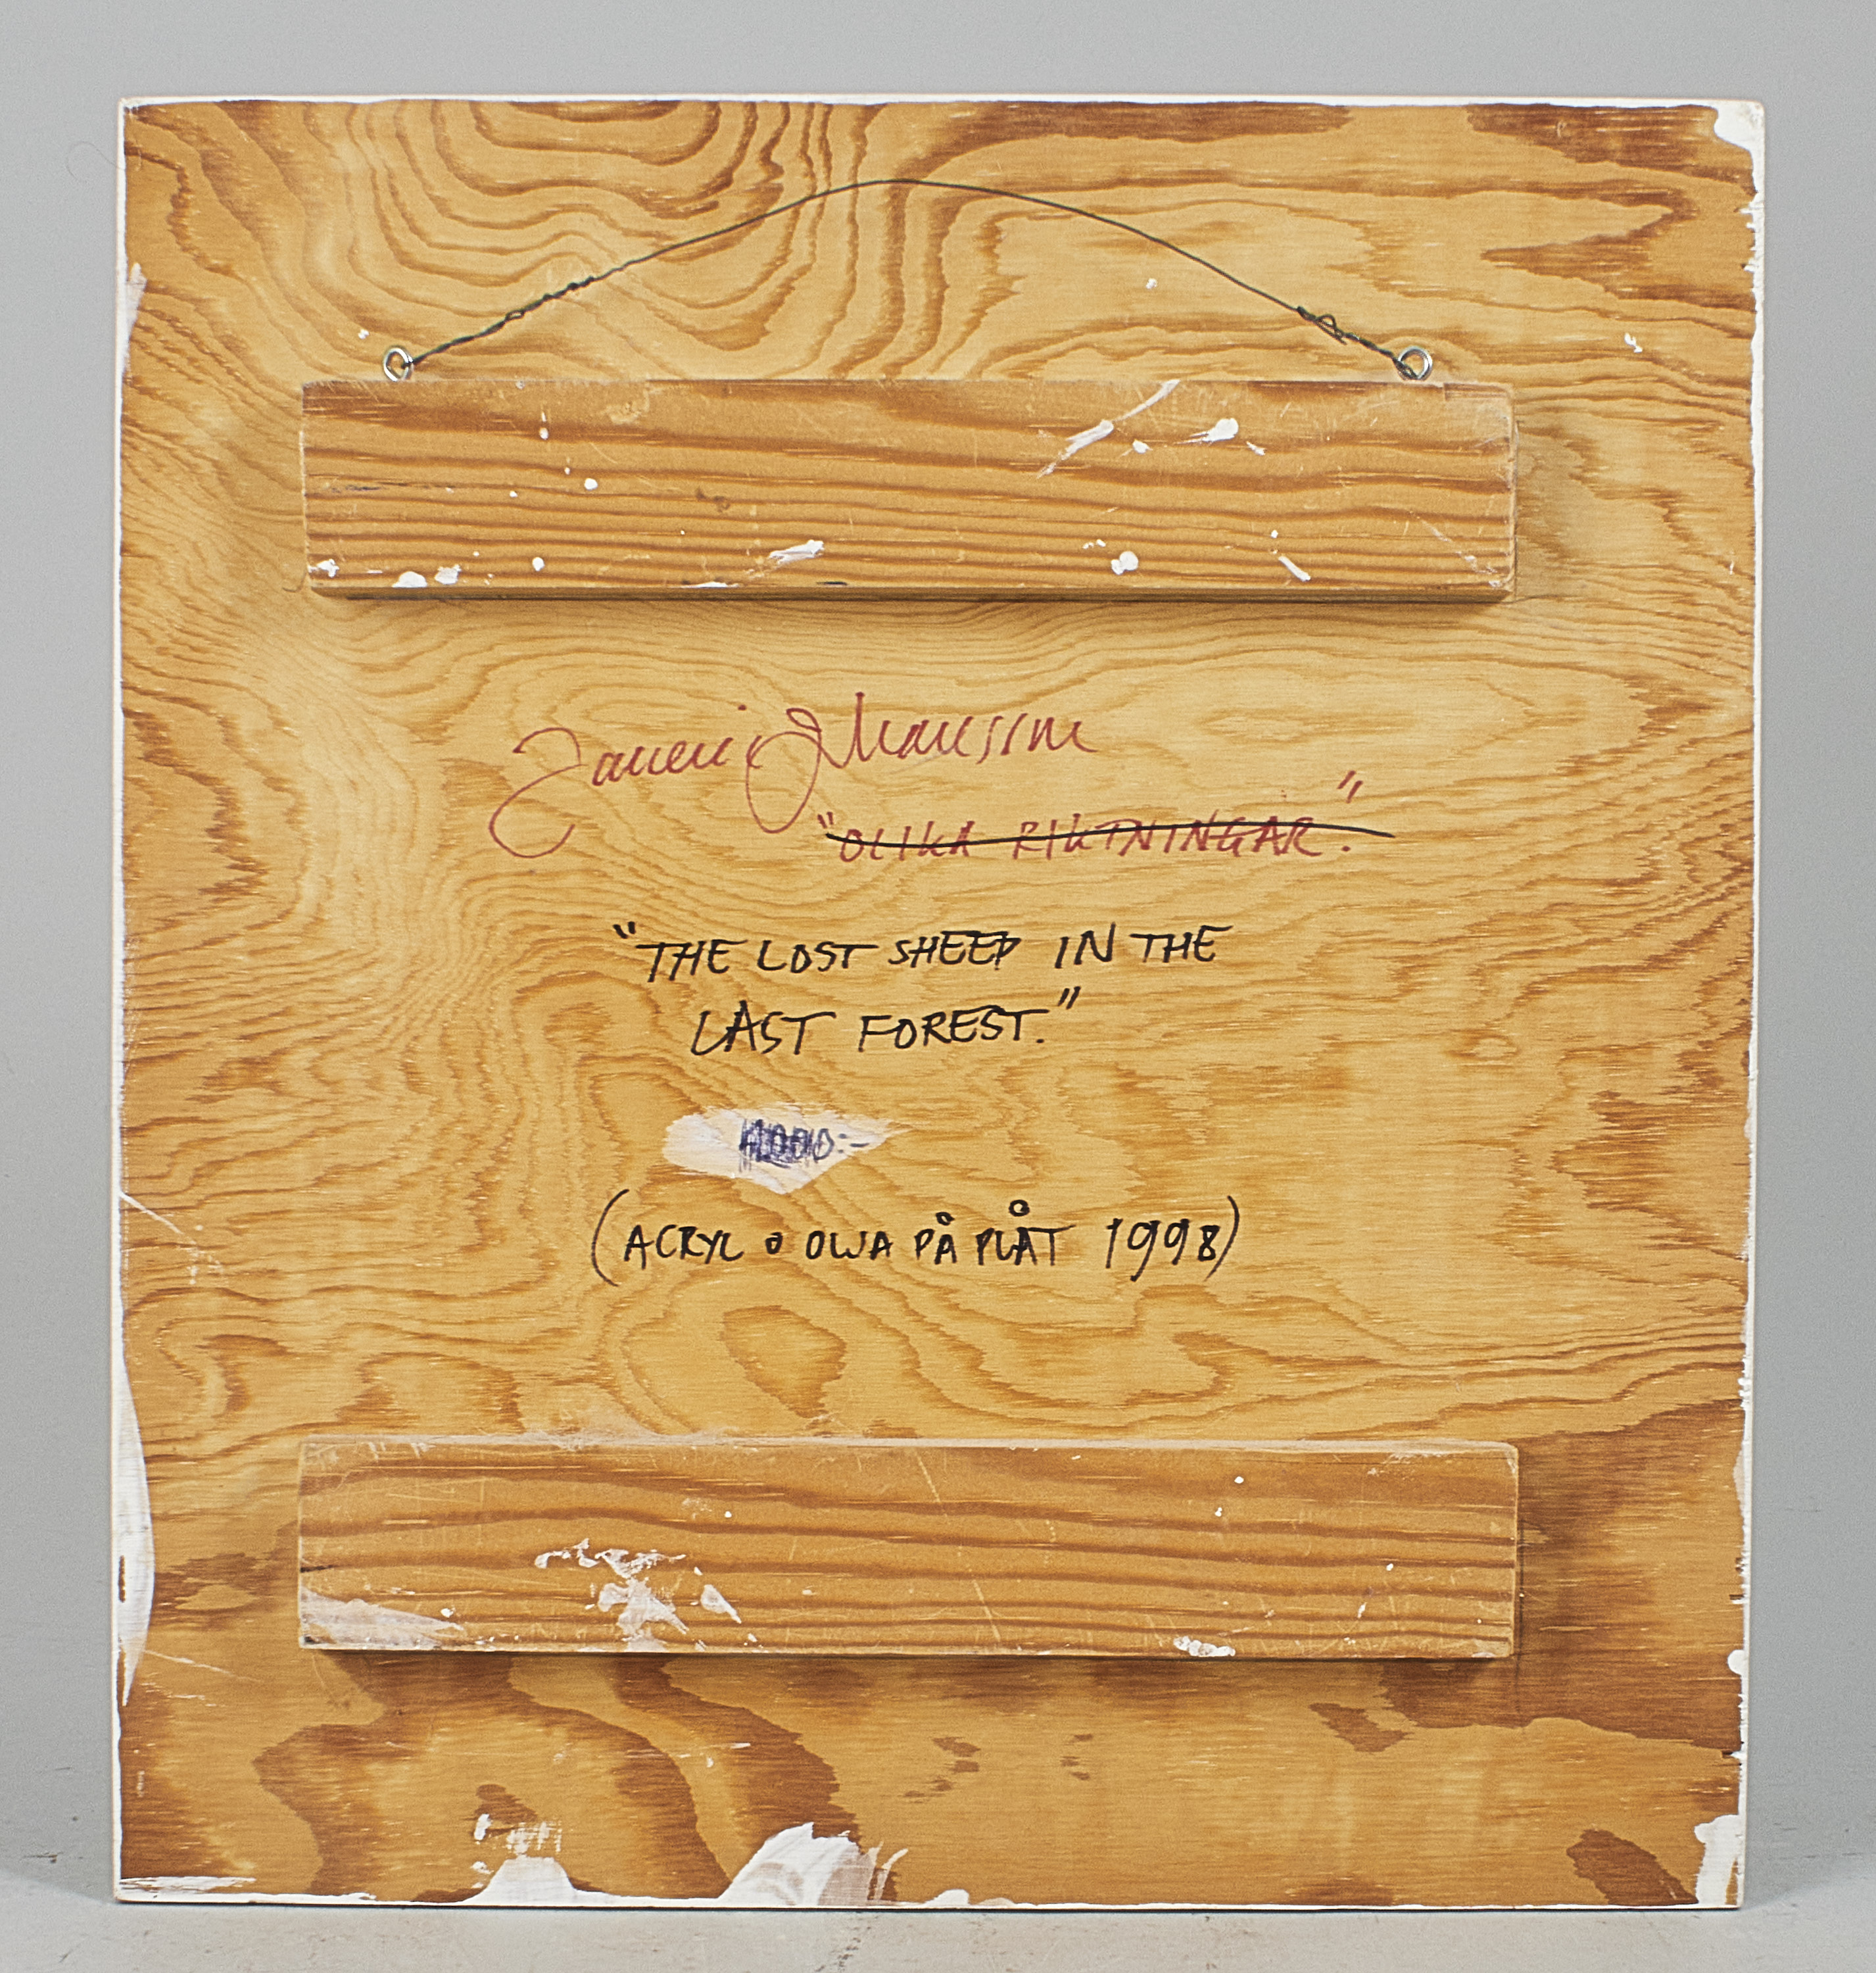 "OLIKA RIKTNINGAR."
"THE LOST SHEEP IN THE
LAST FOREST."
(ACRYL o OLJA PÅ PLÅT 1998)